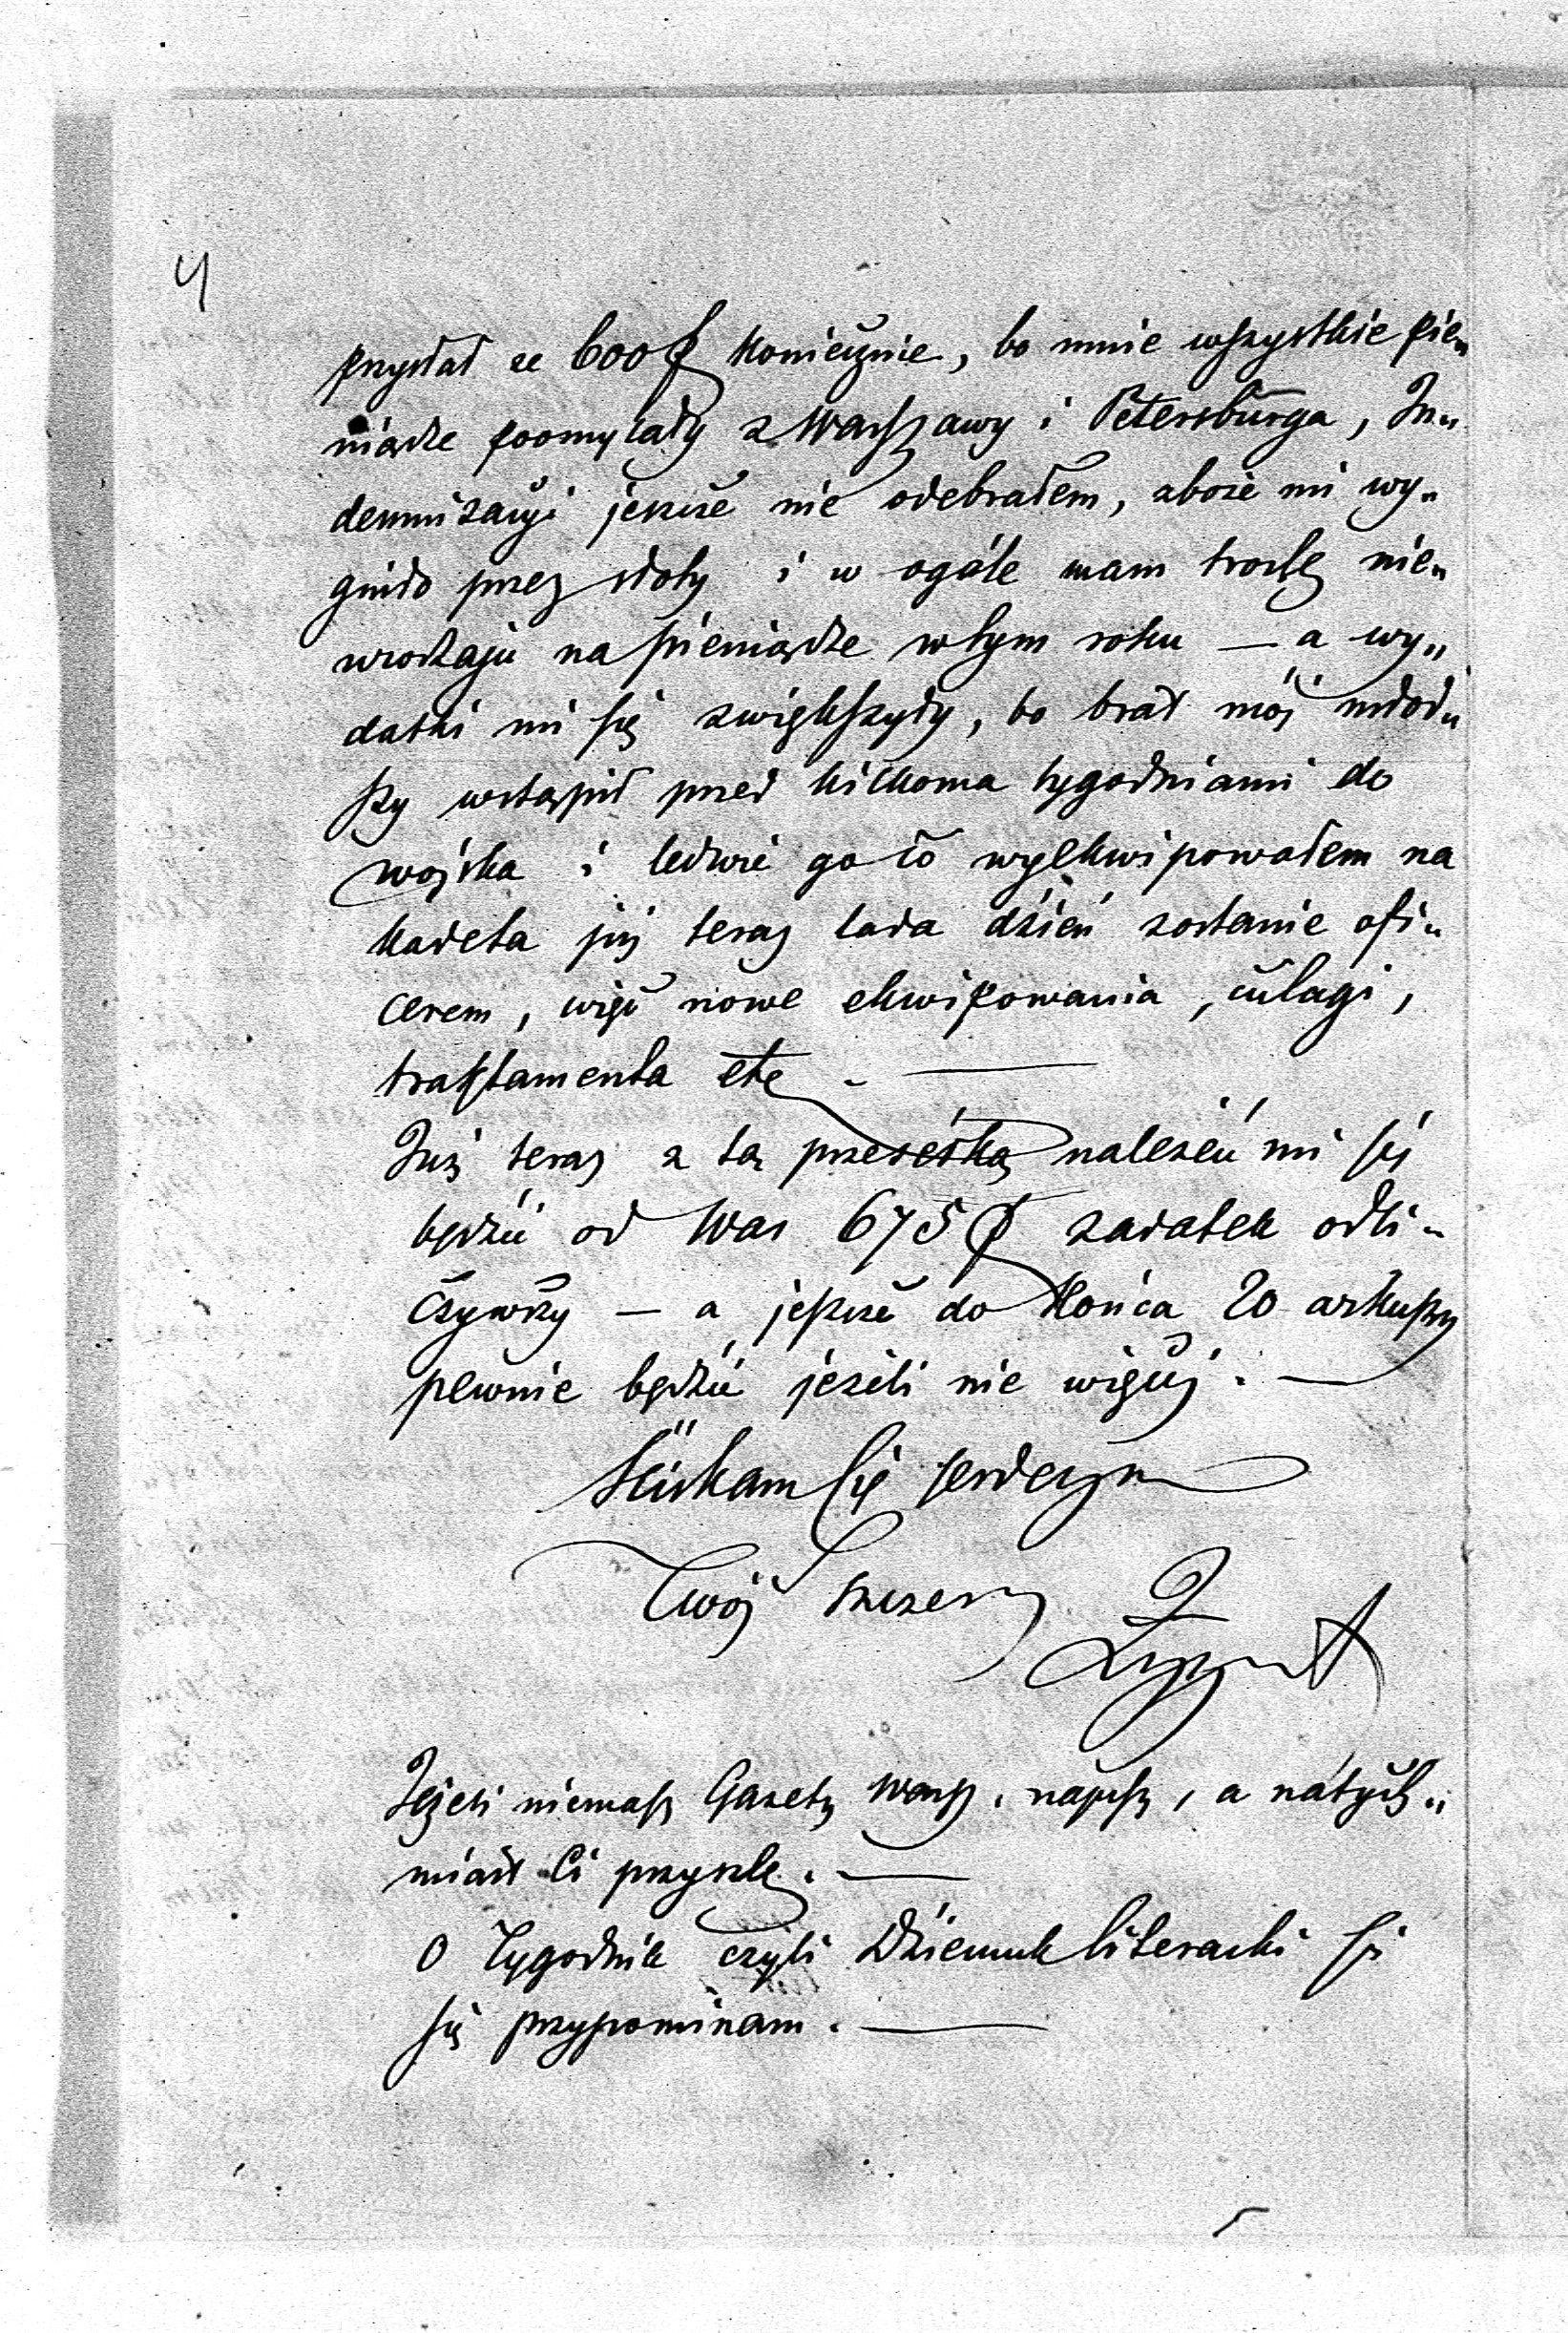 4
przysłał ze 600 f koniecznie, bo mnie wszystkie pie„
niądze poomylały z Warszawy i Petersburga, In„
demnizacyi jeszcze nie odebrałem, zboże mi wy„
gniło przez słoty i w ogóle mam trochę nie„
urodzaju na pieniądze w tym roku — a wy„
datki mi się zwiększyły, bo brat mój młod„
szy wstąpił przed kilkoma tygodniami do
wojska i ledwie go co wyekwipowałem na
kadeta już teraz lada dzień zostanie ofi„
cerem, więc nowe ekwipowania, culagi,
traktamenta etc. —
Już teraz z tą przesełką należeć mi się
będzie od Was 675 f zadatek odli„
czywszy — a jeszcze do końca 20 arkuszy
pewnie będzie jeżeli nie więcej. —
Ściskam Cię serdecznie
Twój szczery
Zygmunt
Jeżeli niemasz Gazety Warsz. napisz, a natych„
miast Ci przyszlę. —
O Tygodnik czyli Dziennik literacki Ci
się przypominam. —